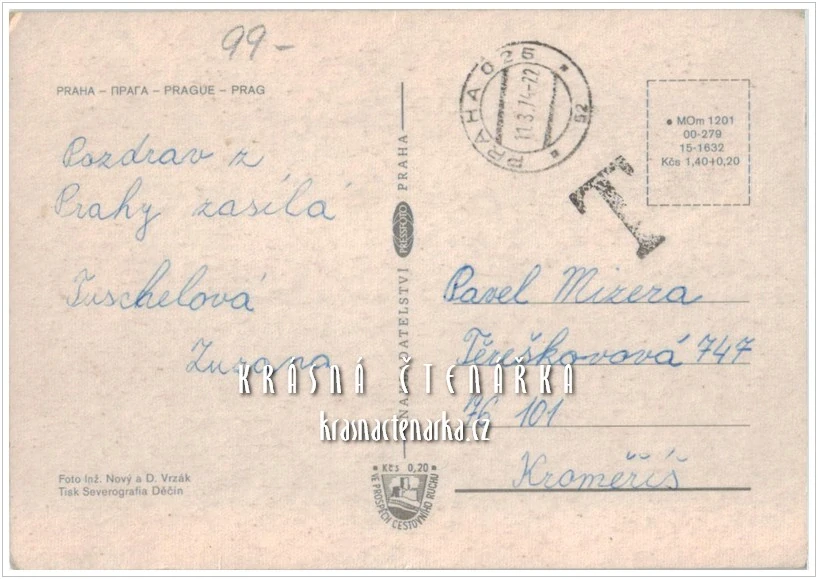 99-
PRAHA – ПРАГА – PRAGUE – PRAG
Pozdrav z
Prahy zasílá
Tuschelová
Zuzana
Foto Inž. Nový a D. Vrzák
Tisk Severografia Děčín
NAKLADATELSTVÍ PRESSFOTO PRAHA
• Kčs 0,20 •
VE PROSPĚCH CESTOVNÍHO RUCHU
PRAHA 026
11.3.74-22
52
T
• MOm 1201
00-279
15-1632
Kčs 1,40+0,20
Pavel Mizera
Těreškovová 747
76 101
Kroměříš
KRÁSNÁ ČTENÁŘKA
krasnactenarka.cz